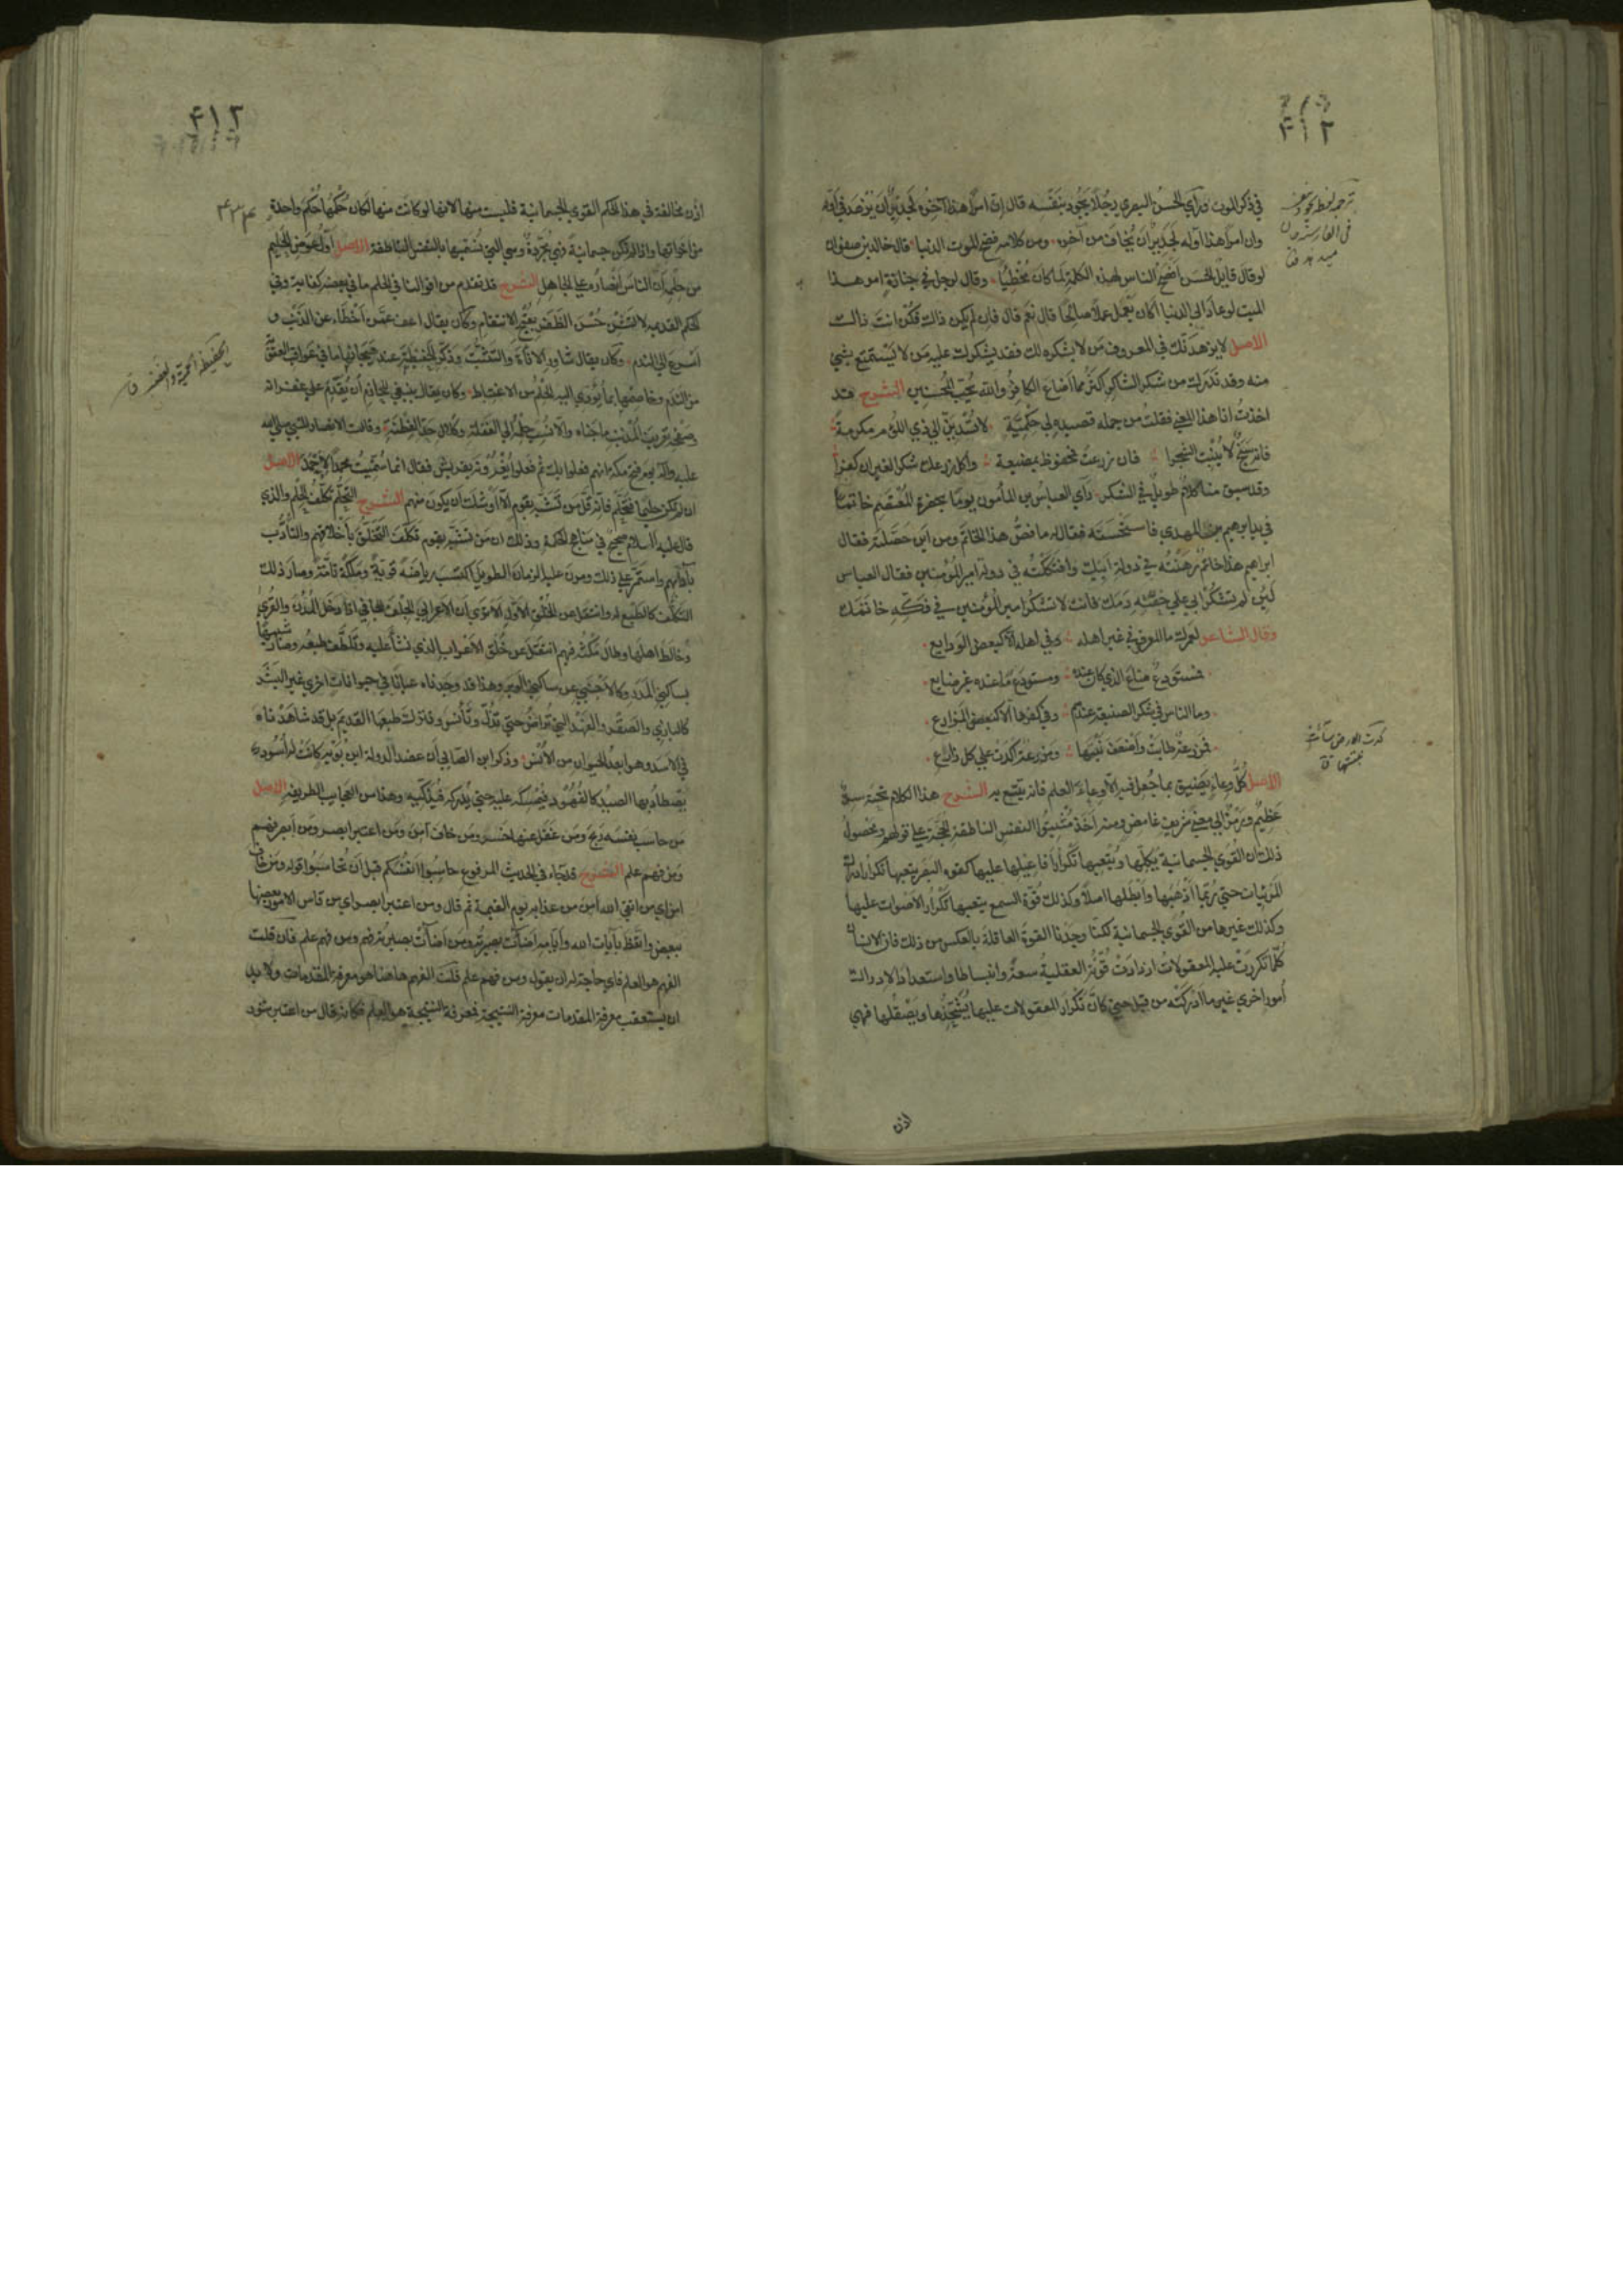 ۴۱۲
في ذكر الموت وراي الحسن البصري رجلا يجود بنفسه قال ان امرا هذا آخره لجدير ان يزهد في اوله
وان امرا هذا اوله لجدير ان يخاف من آخره ومن كلامه فضح الموت الدنيا قال خالد بن صفوان
لو قال قايل الحسن افصح الناس لهذه الكلمة لما كان مخطيا وقال لرجل في جنازة امر هذا
الميت لو عاد الى الدنيا اكان يعمل عملا صالحا قال نعم قال فان لم يكن ذالك فكن انت ذالك
الاصل لا يزهدنك في المعروف من لا يشكره لك فقد يشكرك عليه من لا يستمتع بشي
منه وقد تدرك من شكر الشاكر اكثر مما اضاع الكافر والله يحب المحسنين الشرح قد
اخذت انا هذا المعني فقلت من جمله قصيده لي حكمية لا تسدين الي ذي اللؤم مكرمة
فانه سبخ لا ينبت الشجرا فان زرعت فمحفوظ بمضيعة واكل زرعك شكر الغير ان كفرا
وقد سبق منا كلام طويل في الشكر رأي العباس بن المأمون يوما بحضرة المعتصم خاتما
في يد ابرهيم بن المهدي فاستحسنه فقال له ما فص هذا الخاتم ومن اين حصلته فقال
ابراهيم هذا خاتم رهنته في دولة ابيك وافتككته في دولة امير المؤمنين فقال العباس
لئن لم تشكر ابي علي حقنه دمك فانت لا تشكر امير المؤمنين في فكه خاتمك
وقال الشاعر لعمرك ما المعروف في غير اهله وفي اهله الا كبعض الودايع
فمستودع ضاع الذي كان عنده ومستودع ما عنده غير ضايع
وما الناس في شكر الصنيعة عندهم وفي كفرها الا كبعض المزارع
فمزرعة طابت واضعف نبتها ومزرعة اكدت علي كل زارع
الاصل كل وعاء يضيق بما جعل فيه الا وعاء العلم فانه يتسع به الشرح هذا الكلام تحته سر
عظيم ورمز الي معني شريف غامض ومنه اخذ مثبتوا النفس الناطقة الحجة علي قولهم ومحصول
ذلك ان القوي الجسمانية يكلها ويتعبها تكرار افاعيلها عليها كقوة البصر يتعبها تكرار ادراك
المرئيات حتي ربما اذهبها وابطلها اصلا وكذلك قوة السمع يتعبها تكرار الاصوات عليها
وكذلك غيرها من القوي الجسمانية لكنا وجدنا القوة العاقلة بالعكس من ذلك فان الانسان
كلما تكررت عليه المعقولات ازدادت قوته العقلية سعة وانبساطا واستعدادا لادراك
امور اخري غير ما ادركته من قبل حتي كان تكرار المعقولات عليها يشحذها ويصقلها فهي
اذن
۴۱۳
اذن مخالفة في هذا الحكم القوي الجسمانية فليست منها لانها لو كانت منها لكان حكمها حكم واحدة
من اخواتها واذا لم تكن جسمانية فهي مجردة وهي التي نسميها بالنفس الناطقة الاصل اول عوض الحليم
من حلمه ان الناس انصاره علي الجاهل الشرح قد تقدم من اقوالنا في الحلم ما في بعضه كفاية وفي
الحكم القديمة لا تشن حسن الظفر بقبح الانتقام وكان يقال اعف عمن اخطاء عن الذنب و
اسرع الى الندم وكان يقال شاور الاناة والتثبت وذكر الحفيظة عند هيجانها ما في عواقب العقوبة
من الندم وخاصمها بما يؤدي اليه الحلم من الاغتباط وكان يقال ينبغي للحازم ان يقدم علي
عليه وآله يوم فتح مكة انهم فعلوا بك ثم فعلوا يغرونه بقريش فقال انما سميت محمدا لاحمد الاصل
ان لم تكن حليما فتحلم فانه قل من تشبه بقوم الا اوشك ان يكون منهم الشرح التحلم تكلف الحلم والذي
قاله عليه السلام صحيح في مناهج الحكمة وذلك ان من تشبه بقوم وتكلف التخلق بأخلاقهم والتأدب
بآدابهم واستمر علي ذلك ومرن عليه الزمان الطويل اكتسب رياضة قوية وملكة تامة وصار ذلك
التكلف كالطبع له وانتقل عن الخلق الاول الا تري ان الاعرابي الجلف الجافي اذا دخل المدن والقري
وخالط اهلها وطال مكثه فيهم انتقل عن خلق الاعراب الذي نشأ عليه وتلطف طبعه وصار شبيها
بساكني المدر وكالاجنبي عن ساكني الوبر وهذا قد وجدناه عيانا في حيوانات اخري غير البشر
كالبازي والصقر والفهد التي تراض حتي تذل وتأنس وتترك طبعها القديم بل قد شاهدناه
في الاسد وهو ابعد الحيوان من الانس وذكر ابن الصابي ان عضد الدولة ابن بويه كانت له اسود
يصطاد بها الصيد كالفهود فيمسكه عليه حتي يدركه فيذكيه وهذا من العجايب الطريفة الاصل
من حاسب نفسه ربح ومن غفل عنها خسر ومن خاف امن ومن اعتبر ابصر ومن ابصر فهم
ومن فهم علم الشرح قد جاء في الحديث المرفوع حاسبوا انفسكم قبل ان تحاسبوا قوله ومن خاف
امن اي من اتقي الله امن من عذابه يوم القيمة ثم قال ومن اعتبر ابصر اي من قاس الامور بعضها
ببعض واتعظ بآيات الله وأيامه اضأت بصيرته ومن اضأت بصيرته فهم ومن فهم علم فان قلت
الفهم هو العلم فاي حاجة له ان يقول ومن فهم علم قلت الفهم هاهنا هو معرفة المقدمات ولا بد
ان يستعقب معرفة المقدمات معرفة النتيجة فمعرفة النتيجة هو العلم فكانه قال من اعتبر تنور